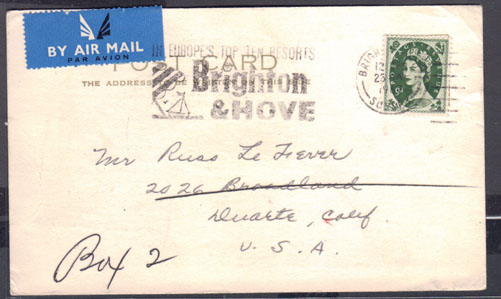 BY AIR MAIL
PAR AVION
IN EUROPE'S TOP TEN RESORTS
POST CARD
THE ADDRESS TO BE THIS SIDE
Brighton
& HOVE
Mr Russ Le Fever
2026 Broadland
Duarte, Calif.
U. S. A.
Box 2